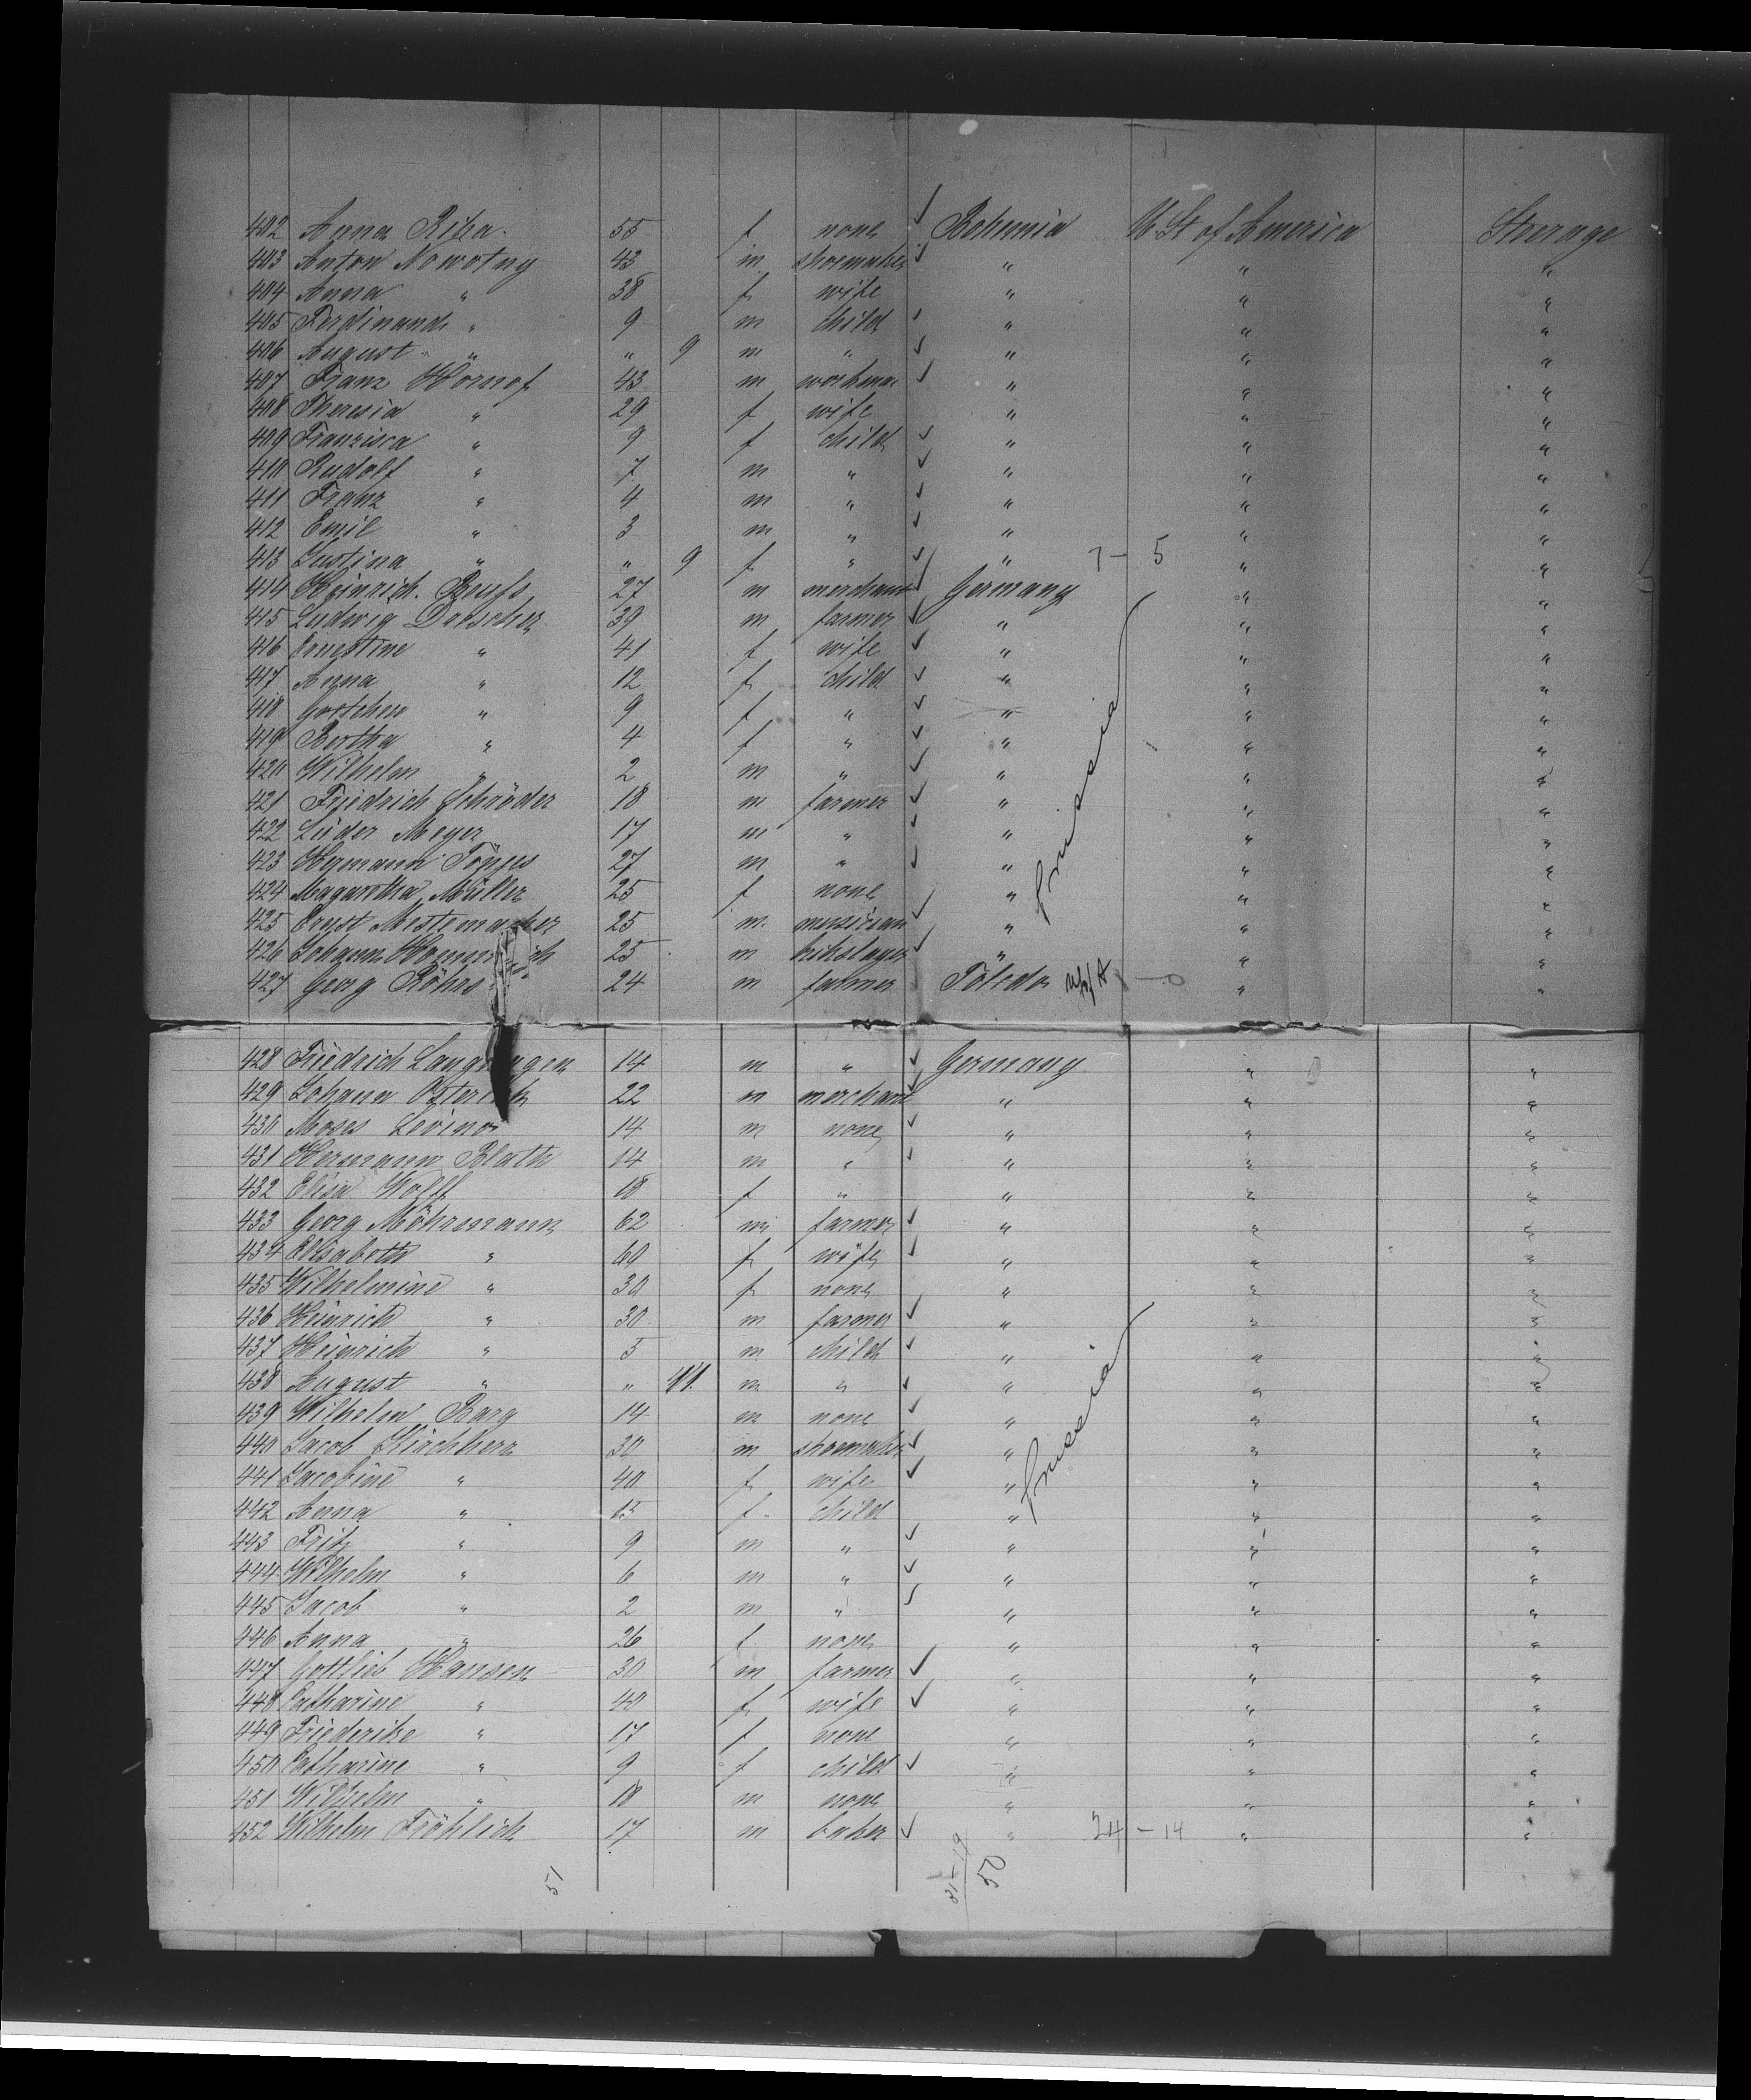 402 Anna Riha 55 f none ✓ Bohemia U. St of America Steerage
403 Anton Nowotny 43 m shoemaker ✓ " " "
404 Anna " 38 f wife " " "
405 Ferdinand " 9 m child ✓ " " "
406 August " " 9 m " ✓ " " "
407 Franz Hornof 43 m workman ✓ " " "
408 Theresia " 29 f wife " " "
409 Franzisca " 9 f child ✓ " " "
410 Rudolf " 7 m " ✓ " " "
411 Franz " 4 m " ✓ " " "
412 Emil " 3 m " ✓ " " "
413 Justina " " 9 f " ✓ " 7 - 5 " "
414 Heinrich 27 m merchant ✓ Germany " "
415 Ludwig Drescher 39 m farmer ✓ " " "
416 Ernestine " 41 f wife ✓ " " "
417 Anna " 12 f child ✓ " " "
418 " 9 f " ✓ " " "
419 Bertha " 4 f " ✓ " " "
420 Wilhelm " 2 m " ✓ " " "
421 Friedrich Schröder 18 m farmer ✓ " " "
422 Lüder Meyer 17 m " ✓ " " "
423 Hermann Tönjes 27 m " ✓ " " "
424 Magaretha Müller 25 f none " " "
425 Ernst Mestemacher 25 m musician ✓ " " "
426 Johann 25 m ✓ " " "
427 Georg Röhrs 24 m farmer Toledo - 0 " "
Prussia
428 Friedrich 14 m " ✓ Germany " "
429 Johann 22 m merchant ✓ " " "
430 Moses 14 m none ✓ " " "
431 Hermann Blath 14 m " ✓ " " "
432 Elisa Wolff 18 f " " " "
433 Georg Möhrmann 62 m farmer ✓ " " "
434 Elisabeth " 60 f wife ✓ " " "
435 Wilhelmine " 30 f none " " "
436 Heinrich " 30 m farmer ✓ " " "
437 Heinrich " 5 m child ✓ " " "
438 August " " 11 m " ✓ " " "
439 Wilhelm Barg 14 m none ✓ " " "
440 Jacob Kirchherr 30 m shoemaker ✓ " " "
441 Jacobine " 40 f wife ✓ " " "
442 Anna " 15 f child " " "
Prussia
443 Fritz " 9 m " ✓ " " "
444 Wilhelm " 6 m " ✓ " " "
445 Jacob " 2 m " ✓ " " "
446 Anna " 26 f none " " "
447 Gottlieb Hansen 30 m farmer ✓ " " "
448 Catharine " 40 f wife ✓ " " "
449 Friederike " 17 f none " " "
450 Catharine " 9 f child ✓ " " "
451 Wilhelm " 18 m none " " "
452 Wilhelm Fröhlich 17 m baker ✓ " 24 - 14 " "
51 31-19 50